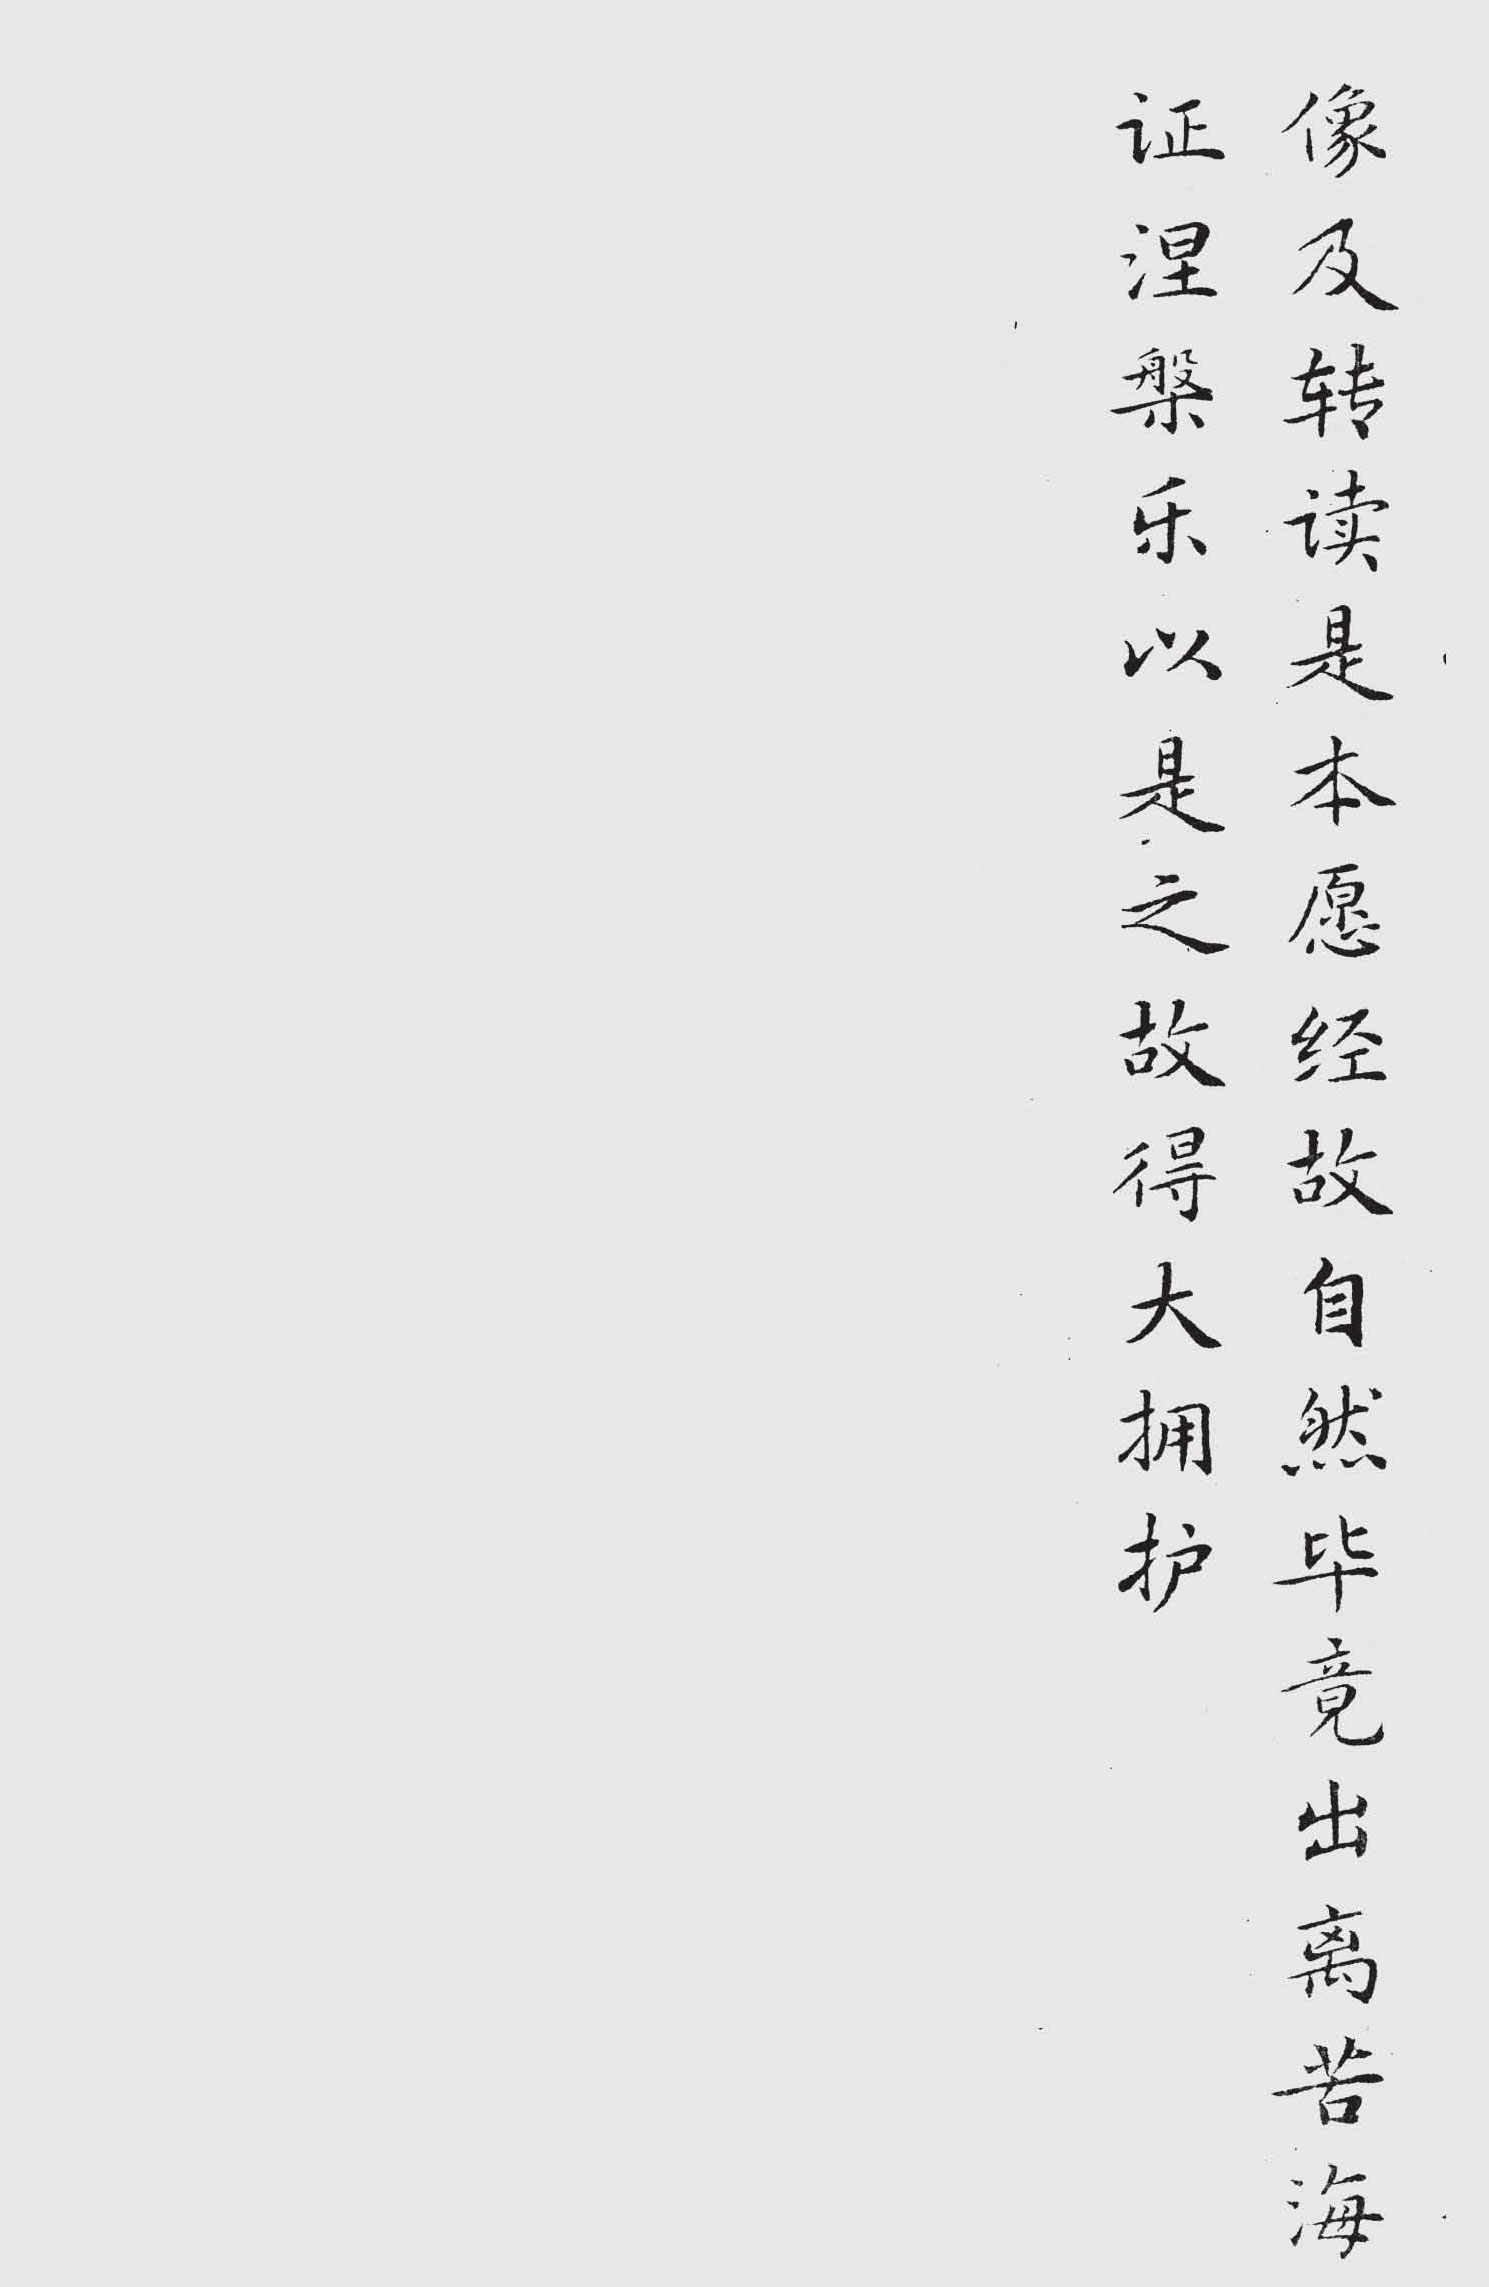 像及转读是本愿经故自然毕竟出离苦海
证涅槃乐以是之故得大拥护